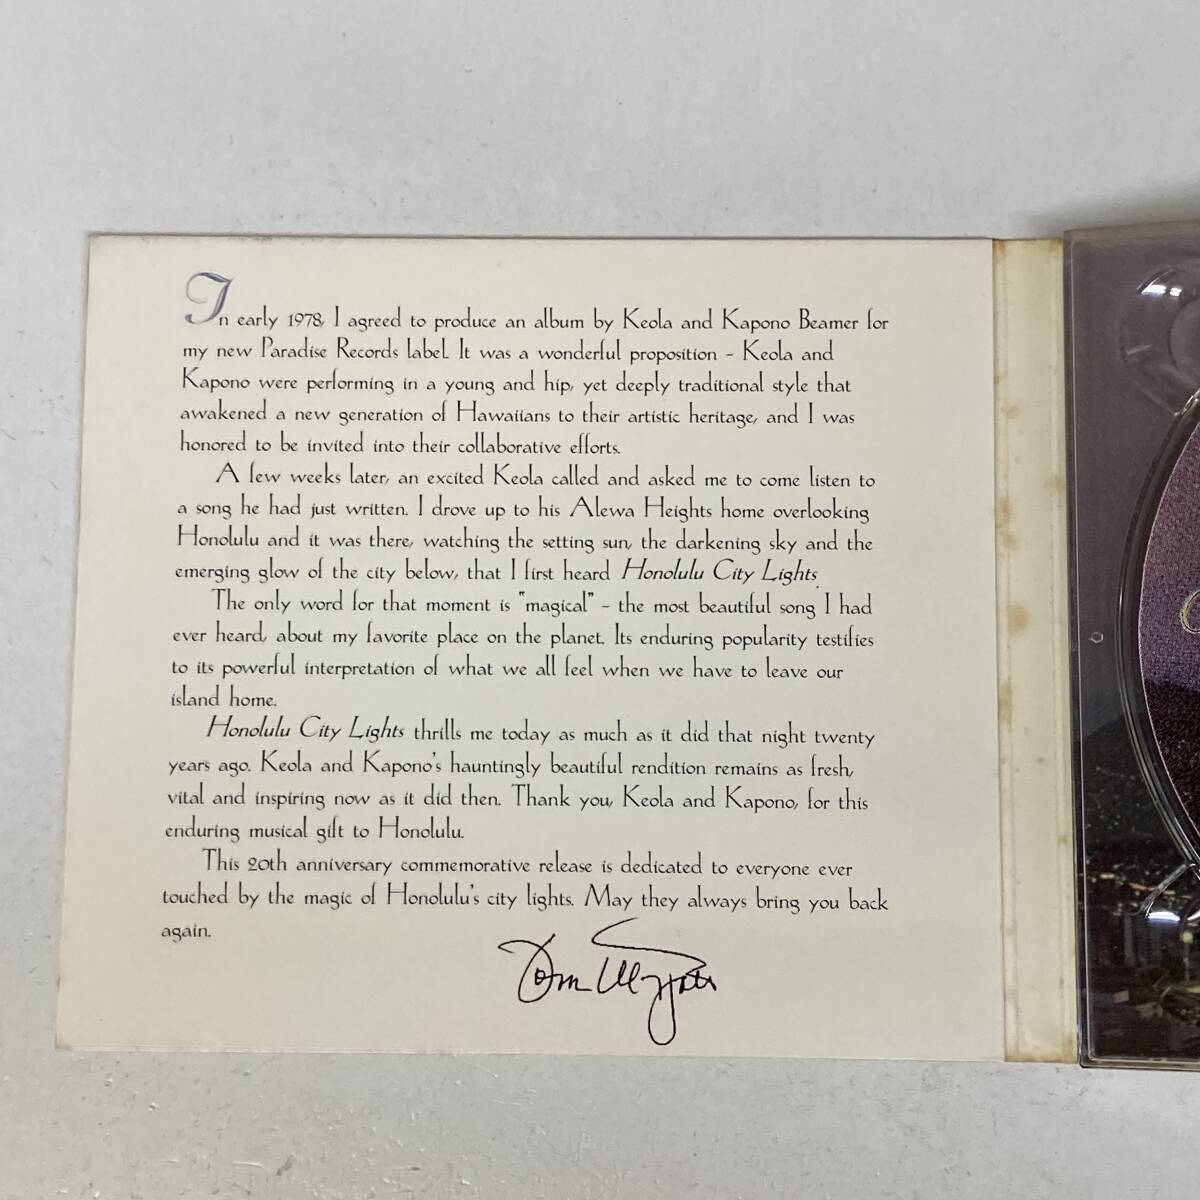 In early 1978, I agreed to produce an album by Keola and Kapono Beamer for
my new Paradise Records label. It was a wonderful proposition - Keola and
Kapono were performing in a young and hip, yet deeply traditional style that
awakened a new generation of Hawaiians to their artistic heritage, and I was
honored to be invited into their collaborative efforts.
A few weeks later, an excited Keola called and asked me to come listen to
a song he had just written. I drove up to his Alewa Heights home overlooking
Honolulu and it was there, watching the setting sun, the darkening sky and the
emerging glow of the city below, that I first heard Honolulu City Lights.
The only word for that moment is "magical" - the most beautiful song I had
ever heard, about my favorite place on the planet. Its enduring popularity testifies
to its powerful interpretation of what we all feel when we have to leave our
island home.
Honolulu City Lights thrills me today as much as it did that night twenty
years ago. Keola and Kapono's hauntingly beautiful rendition remains as fresh,
vital and inspiring now as it did then. Thank you, Keola and Kapono, for this
enduring musical gift to Honolulu.
This 20th anniversary commemorative release is dedicated to everyone ever
touched by the magic of Honolulu's city lights. May they always bring you back
again.
Tom Moffatt